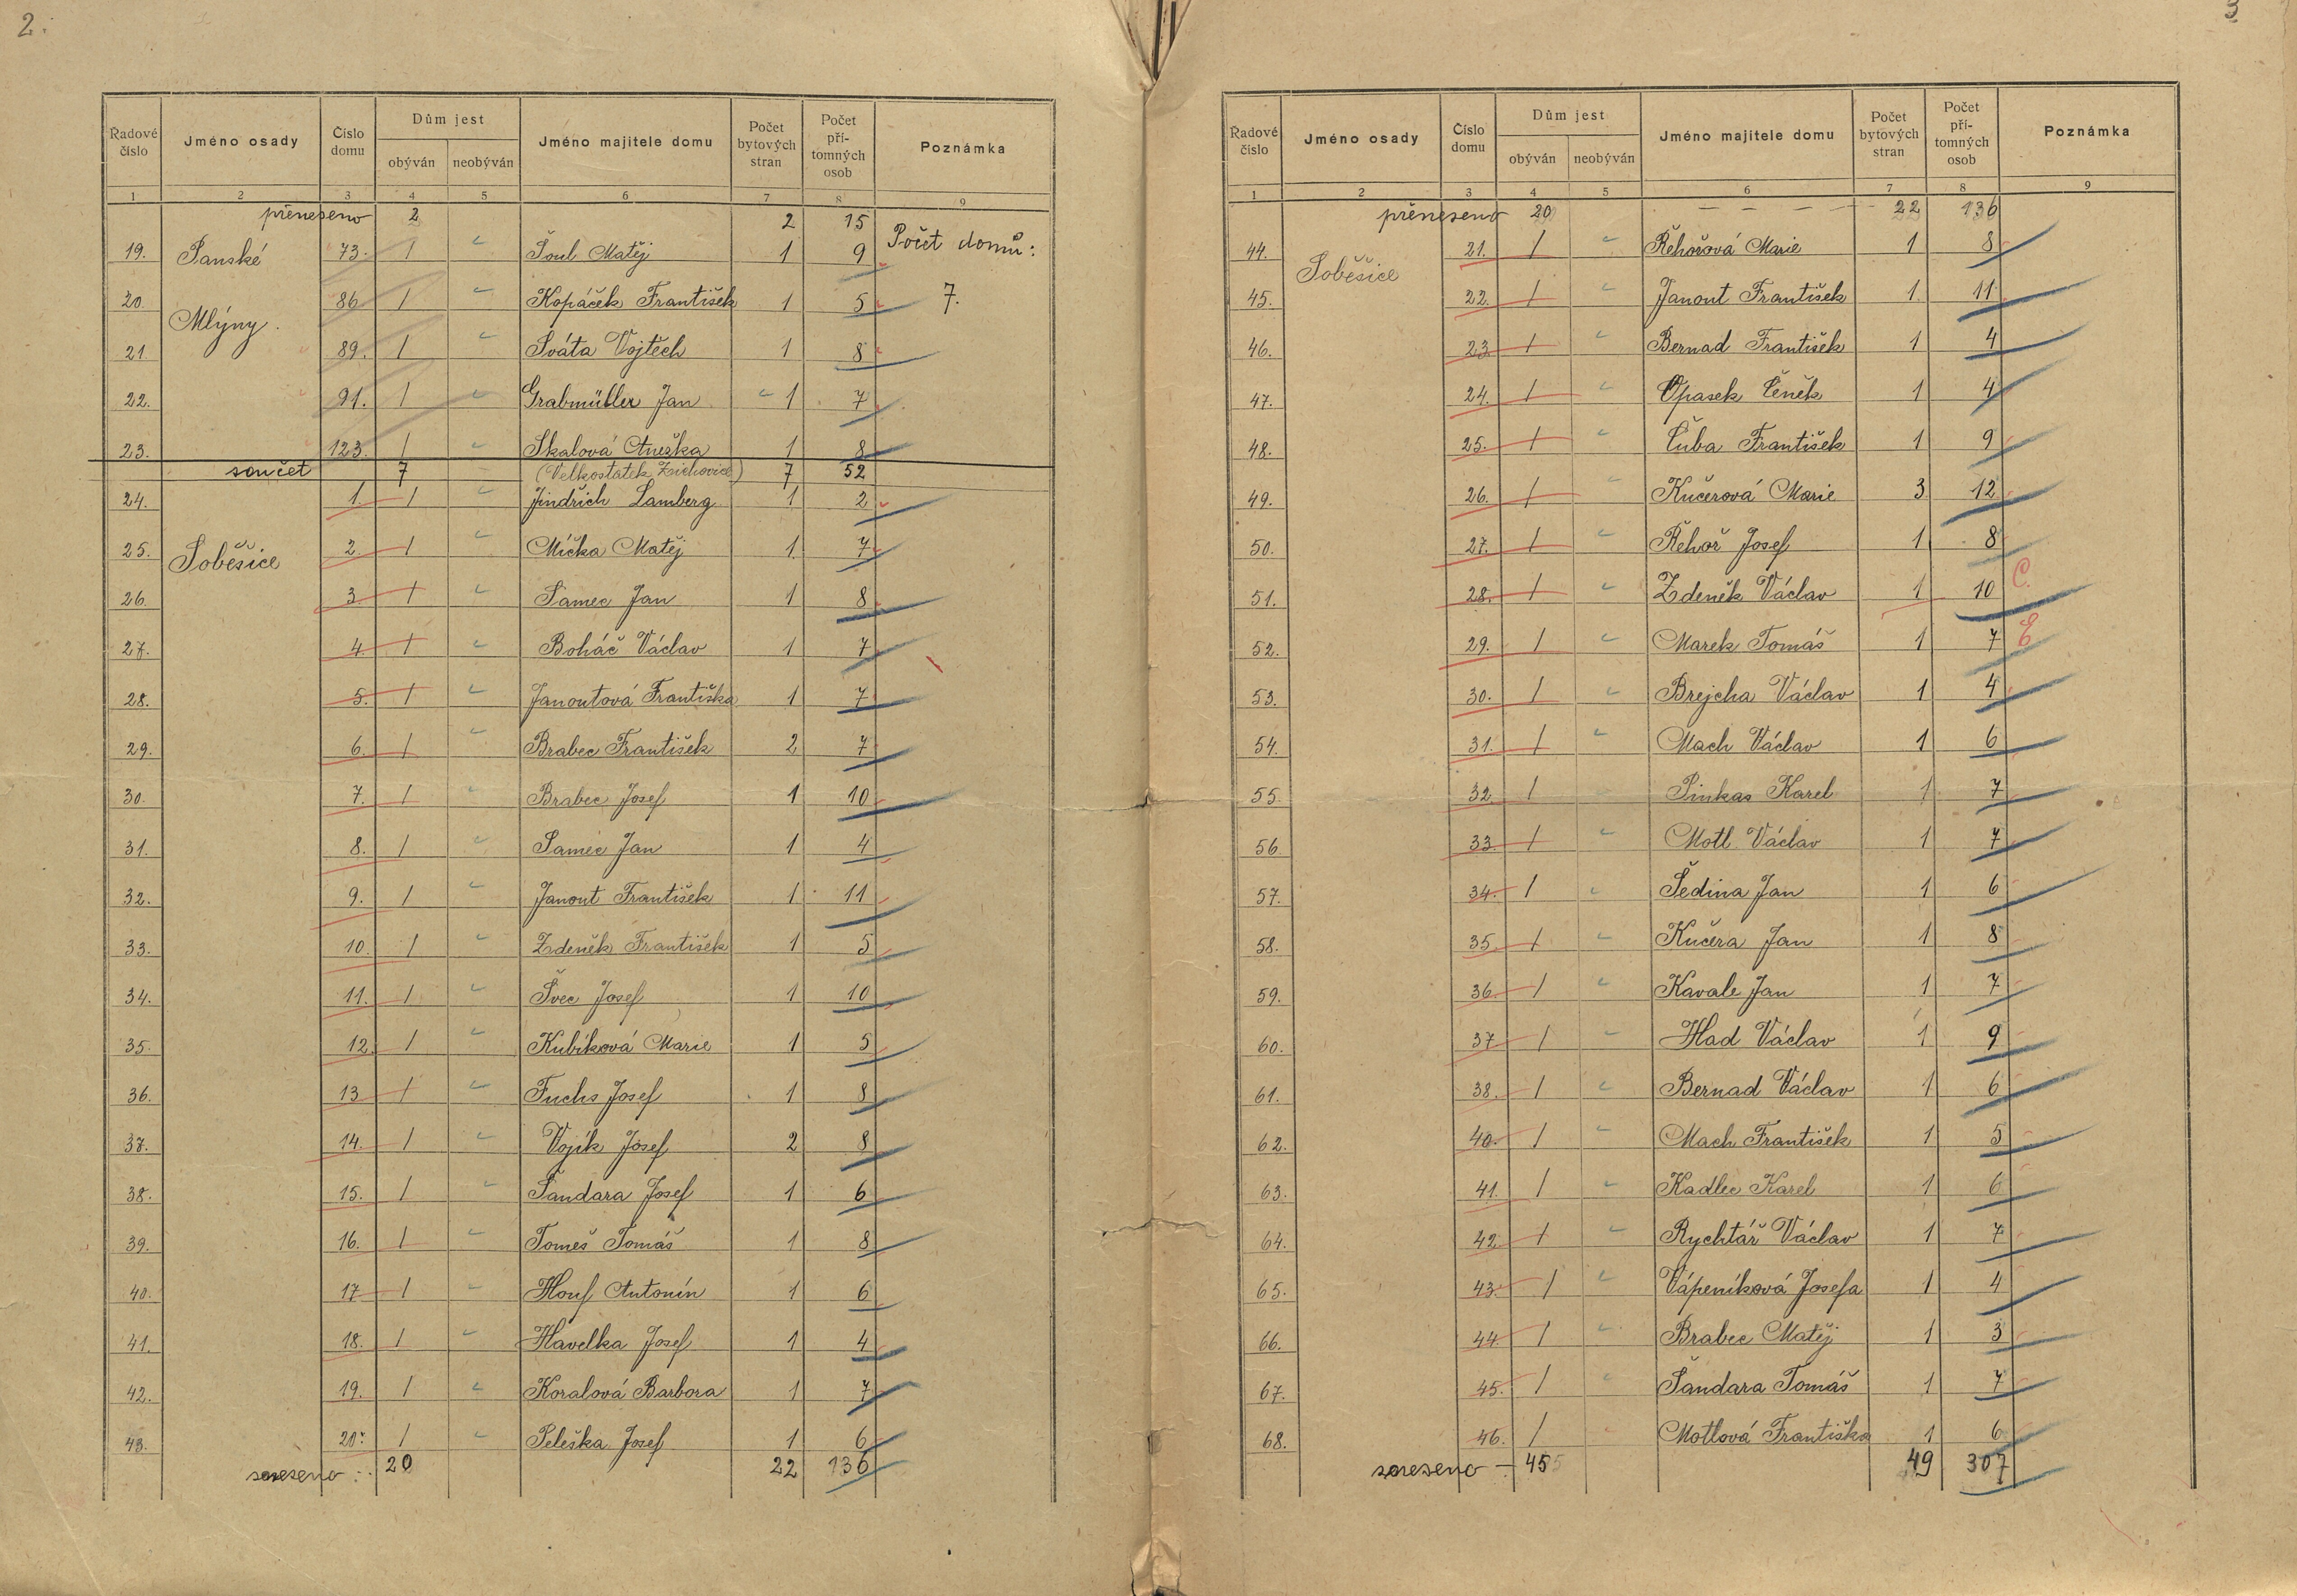 2.
Řadové číslo | Jméno osady | Číslo domu | Dům jest obýván | neobýván | Jméno majitele domu | Počet bytových stran | Počet pří- tomných osob | Poznámka
1 | 2 | 3 | 4 | 5 | 6 | 7 | 8 | 9
přeneseno 2 2 15
19. Panské 73. 1 Šoul Matěj 1 9 Počet domů:
20. 86 1 Kopáček František 1 5 7.
21 Mlýny. 89. 1 Sváta Vojtěch 1 8
22. 91. 1 Grabmüller Jan 1 7
23. 123. 1 Skalová Anežka 1 8
součet 7 (Velkostatek Žichovice) 7 52
24. 1. 1 Jindřich Lamberg 1 2
25. Soběšice 2 1 Míčka Matěj 1 7
26. 3. 1 Samec Jan 1 8
27. 4. 1 Boháč Václav 1 7
28. 5. 1 Janoutová Františka 1 7
29. 6. 1 Brabec František 2 7
30. 7. 1 Brabec Josef 1 10
31. 8. 1 Samec Jan 1 4
32. 9. 1 Janout František 1 11
33. 10. 1 Zdeněk František 1 5
34. 11. 1 Švec Josef 1 10
35. 12. 1 Kubíková Marie 1 5
36. 13 1 Fuchs Josef 1 8
37. 14. 1 Vojík Josef 2 8
38. 15. 1 Šandara Josef 1 6
39. 16. 1 Tomeš Tomáš 1 8
40. 17 1 Houf Antonín 1 6
41. 18. 1 Havelka Josef 1 4
42. 19. 1 Koralová Barbora 1 7
43. 20. 1 Peleška Josef 1 6
sneseno 20 22 136
3
Řadové číslo | Jméno osady | Číslo domu | Dům jest obýván | neobýván | Jméno majitele domu | Počet bytových stran | Počet pří- tomných osob | Poznámka
1 | 2 | 3 | 4 | 5 | 6 | 7 | 8 | 9
přeneseno 20 22 136
44. Soběšice 21. 1 Řehořová Marie 1 8
45. 22. 1 Janout František 1 11
46. 23. 1 Bernad František 1 4
47. 24. 1 Opasek Čeněk 1 4
48. 25. 1 Čuba František 1 9
49. 26. 1 Kučerová Marie 3 12
50. 27. 1 Řehoř Josef 1 8
51. 28. 1 Zdeněk Václav 1 10 C.
52. 29. 1 Marek Tomáš 1 7
53. 30. 1 Brejcha Václav 1 4
54. 31. 1 Mach Václav 1 6
55. 32 1 Pinkas Karel 1 7
56. 33. 1 Motl Václav 1 7
57. 34. 1 Šedina Jan 1 6
58. 35. 1 Kučera Jan 1 8
59. 36. 1 Kavale Jan 1 7
60. 37 1 Had Václav 1 9
61. 38. 1 Bernad Václav 1 6
62. 40. 1 Mach František 1 5
63. 41. 1 Kadlec Karel 1 6
64. 42. 1 Rychtář Václav 1 7
65. 43. 1 Vápeníková Josefa 1 4
66. 44 1 Brabec Matěj 1 3
67. 45. 1 Šandara Tomáš 1 7
68. 46. 1 Motlová Františka 1 6
sneseno 45 49 307